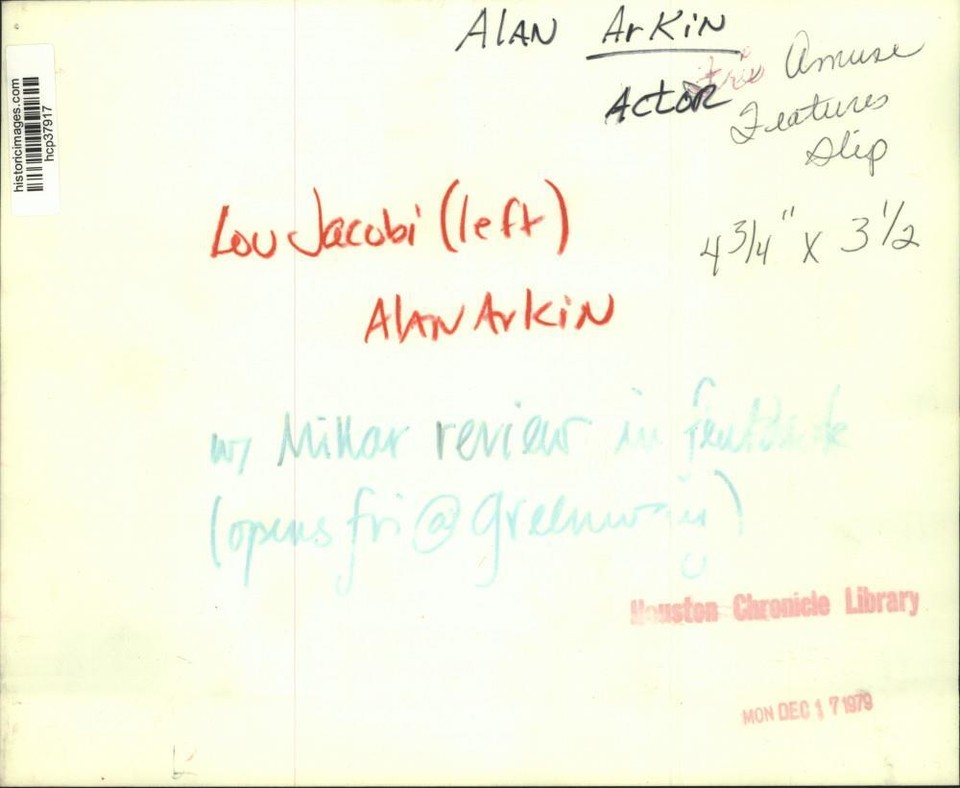 Alan Arkin
Actor
Fri Amuse
Features
Slip
historicimages.com
hcp37917
Lou Jacobi (left)
4 3/4" x 3 1/2
Alan Arkin
w/ Millar review in
(opens fri @ Greenway)
Houston Chronicle Library
MON DEC 17 1979